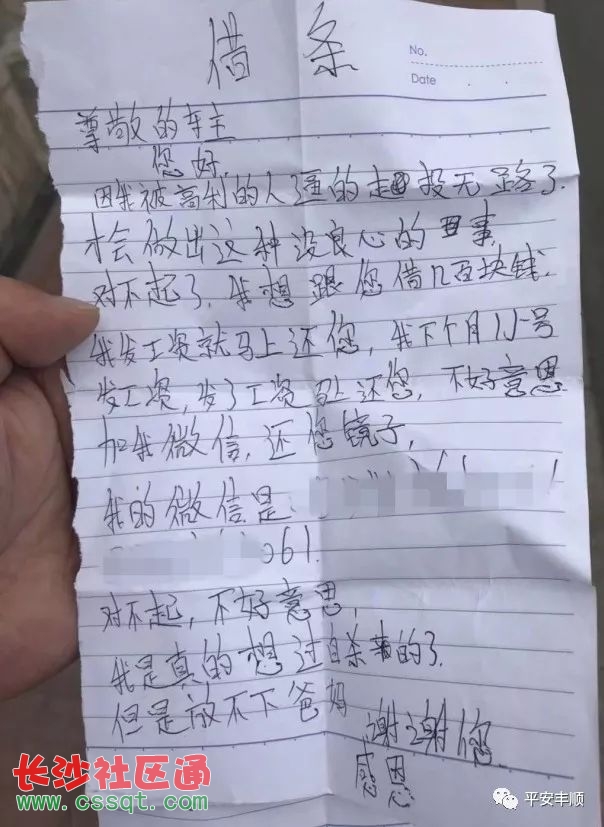 借条
No.
Date
尊敬的车主
您好.
因我被高利的人逼的走投无路了.
才会做出这种没良心的事,
对不起了.我想跟您借几百块钱.
我发工资就马上还您,我下个月15号
发工资,发了工资马上还您,不好意思
加我微信,还您镜子,
我的微信是:
061.
对不起,不好意思,
我是真的想过自杀的了.
但是放不下爸妈
谢谢您
感恩
长沙社区通
www.cssqt.com
平安丰顺